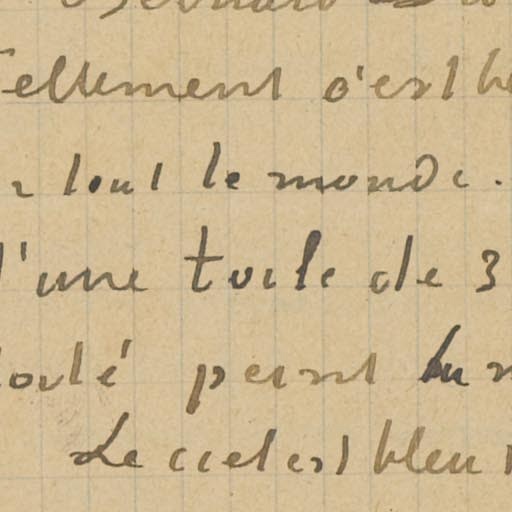 Bernard
ellement c'est be
r tout le monde.
d'une toile de 3
porté peint lu
Le ciel est bleu